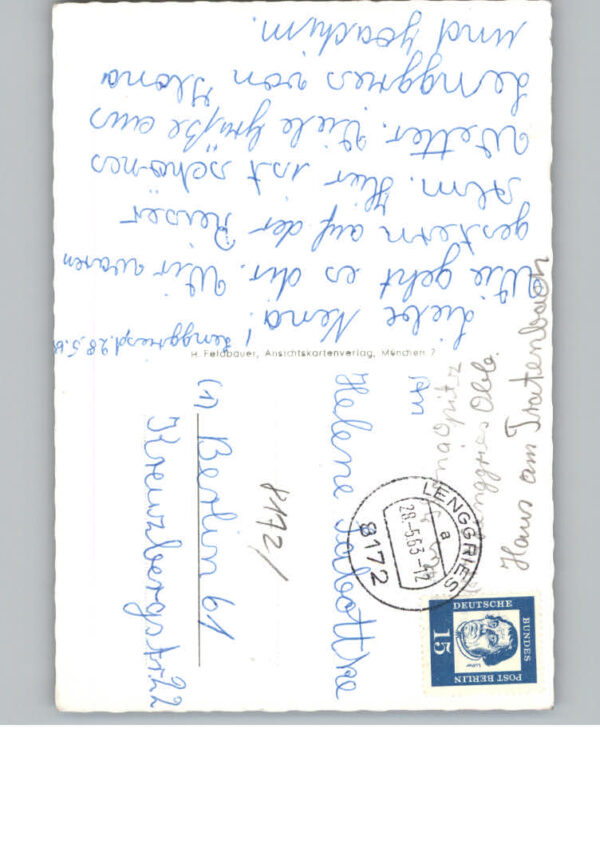 Lenggries d. 28.5.63
Liebe Nena!
Wie geht es dir. Wir waren
gestern auf der Reiser
Alm. Hier ist schönes
Wetter. Viele Grüße aus
Lenggries von Ilona
und Joachim.
H. Feldbauer, Ansichtskartenverlag, München 7
Opitz
Lenggries Obb.
Haus am Tratenbach
LENGGRIES
a
28-5.63-12
8172
DEUTSCHE BUNDES
POST BERLIN
15
Luther
An
Helene Sabottke
8172/
(1) Berlin 61
Kreuzbergstr. 22